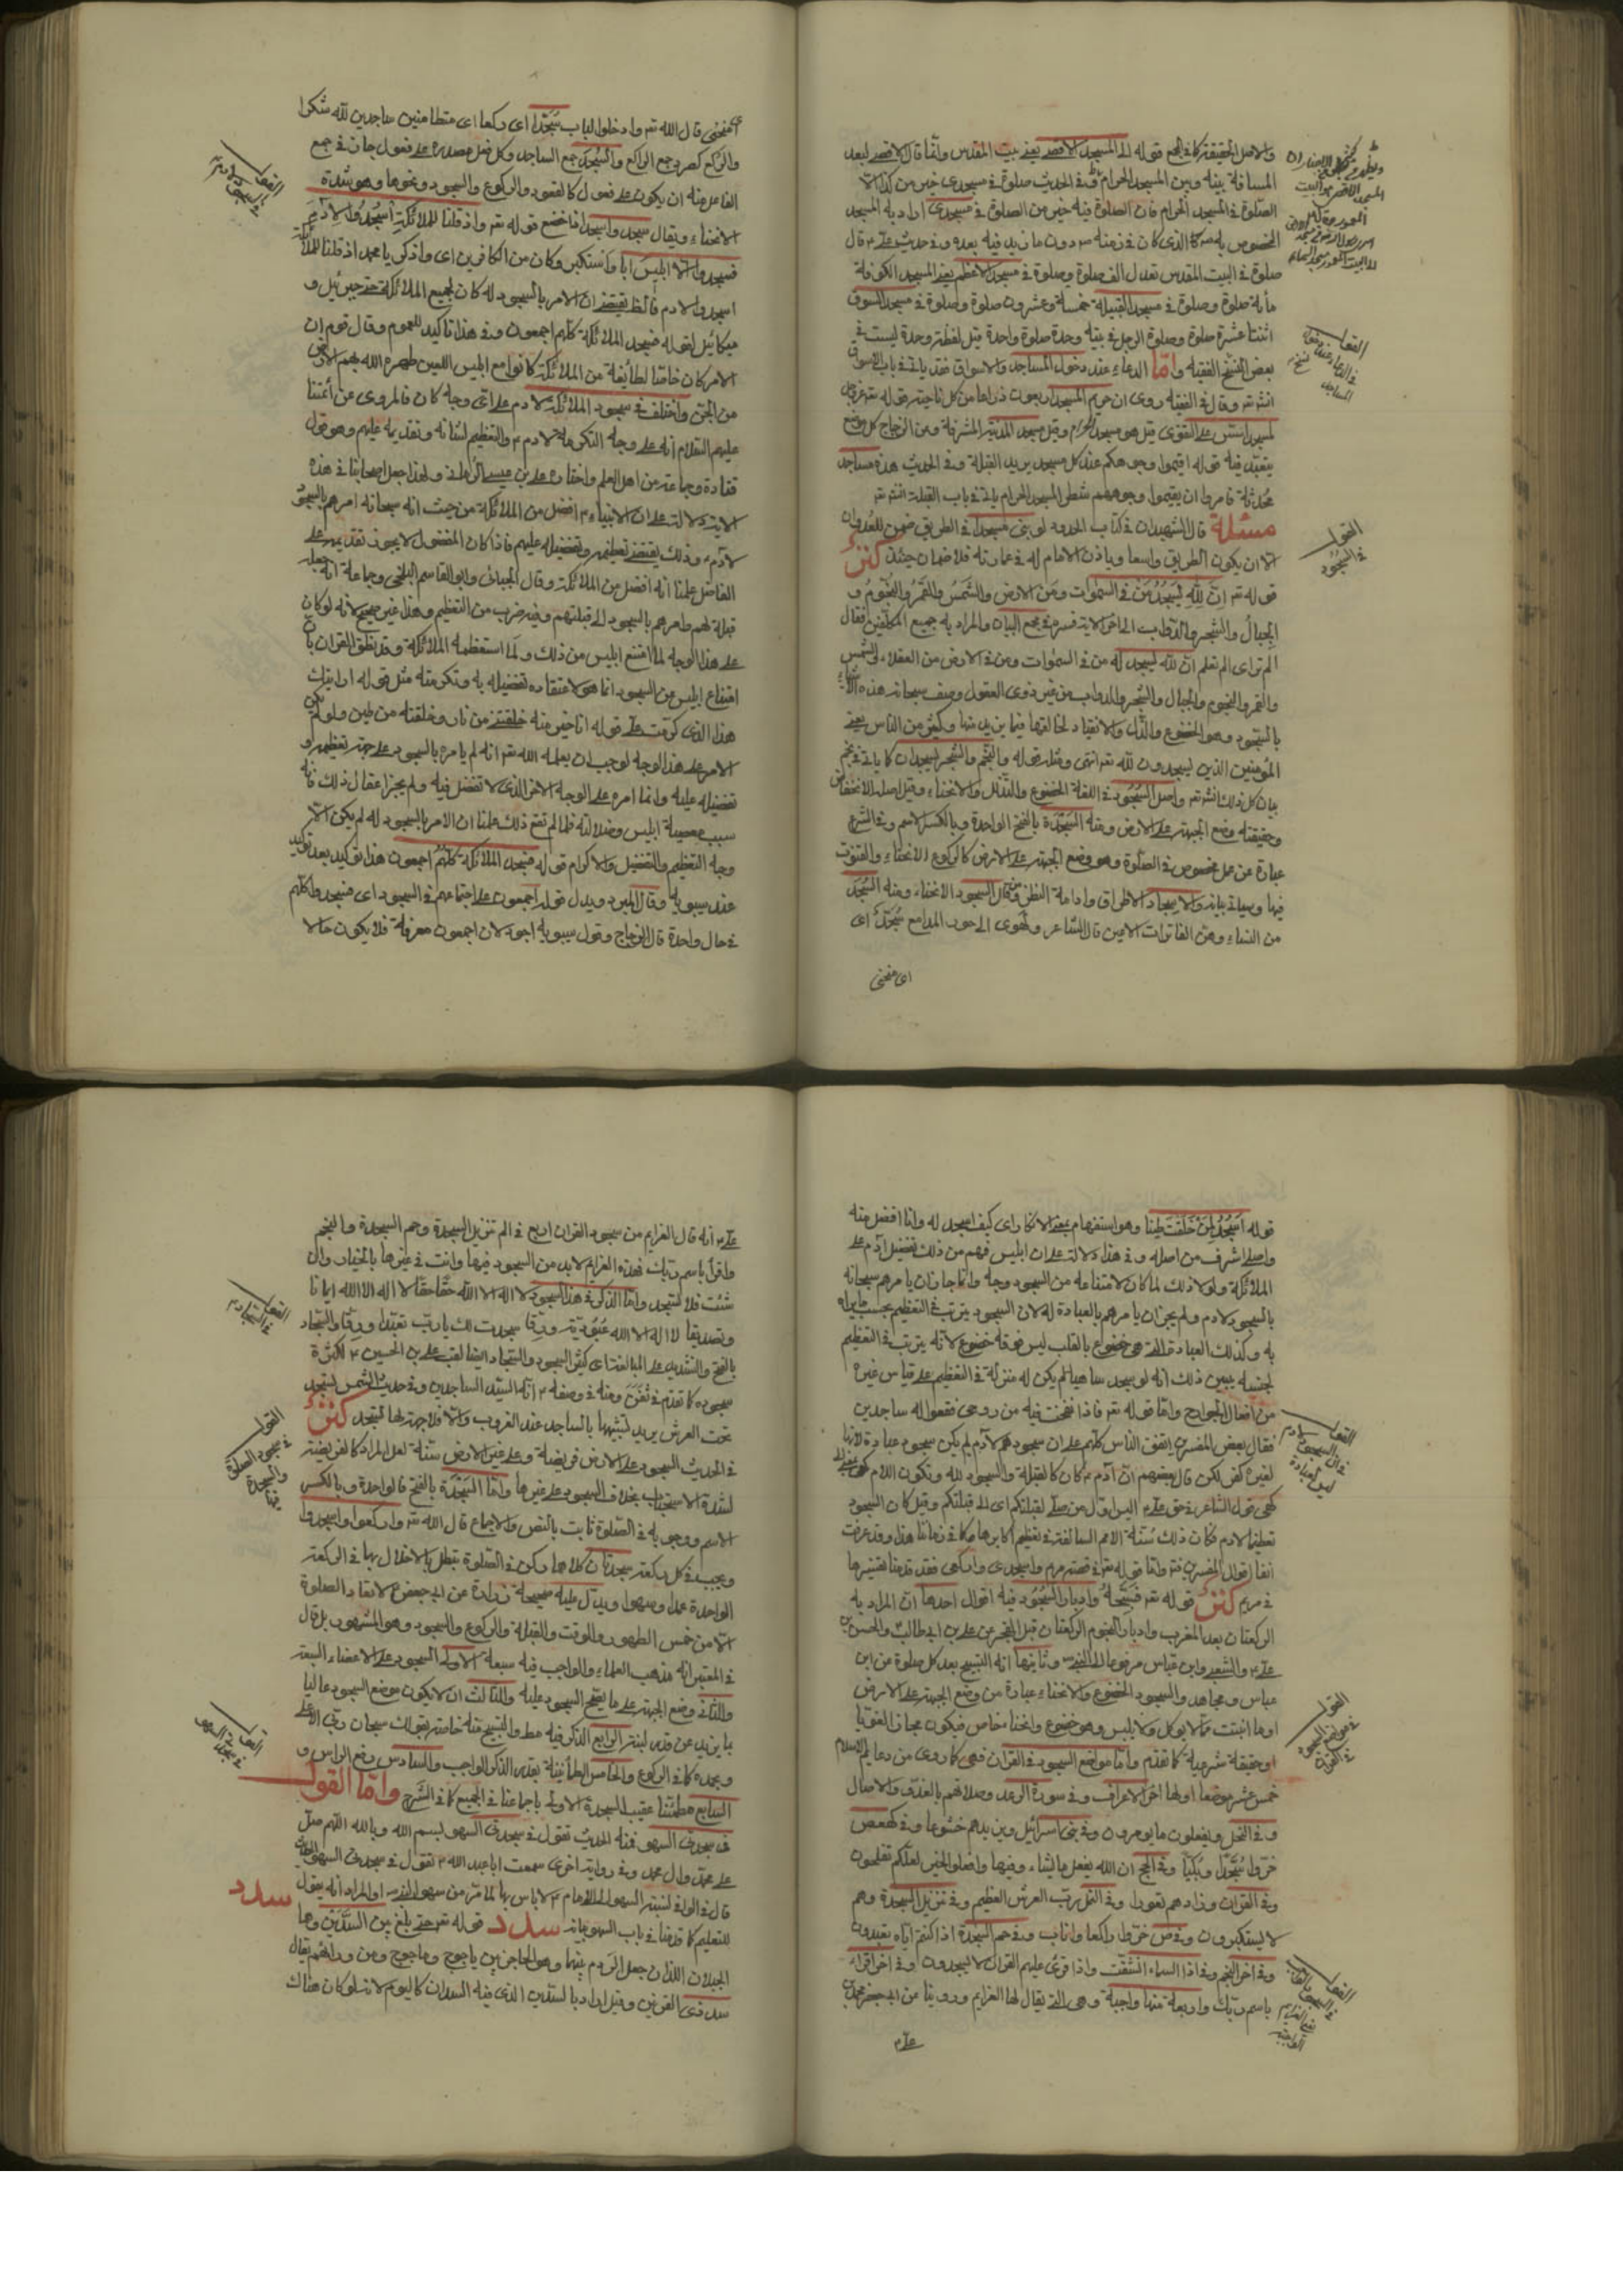 والاصل الحقيقة كما في الجمع قوله الى المسجد الاقصى يعني بيت المقدس وانما قال الاقصى لبعد
المسافة بينه وبين المسجد الحرام وفي الحديث صلوة في مسجدي خير من كذا الا
الصلوة في المسجد الحرام فان الصلوة فيه خير من الصلوة في مسجدي اراد به المسجد
المخصوص به الذي كان في زمنه ص دون ما زيد فيه بعده وفي حديث علي ع قال
صلوة في البيت المقدس تعدل الف صلوة وصلوة في مسجد الاعظم يعني المسجد الكوفة
مأية صلوة وصلوة في مسجد القبيلة خمسة وعشرون صلوة وصلوة في مسجد السوق
اثنتا عشرة صلوة وصلوة الرجل في بيته وحده صلوة واحدة قيل لفظة وحدة ليست في
بعض النسخ الفقيه واما الدعاء عند دخول المساجد والاسواق فقد ياتي في باب الاسواق
انشتم وقال في الفقيه روى ان حريم المسجد اربعون ذراعا من كل ناحية قوله تع
لمسجد اسس على التقوى قيل هو مسجد الحرام وقيل مسجد المدينة المشرفة وعن الزجاج كل موضع
يتعبد فيه قوله اقيموا وجوهكم عند كل مسجد يريد القبلة وفي الحديث هذه مساجد
محدثة فامروا ان يقيموا وجوههم شطر المسجد الحرام ياتي في باب القبلة انشتم
مسئلة قال الشهيدان في كتاب الحدود لو بنى مسجدا في الطريق ضمن للعدوان
الا ان يكون الطريق واسعا وياذن الامام له في عمارته فلا ضمان حينئذ كنز
قوله تع ان لله يسجد من في السموات ومن في الارض والشمس والقمر والنجوم و
الجبال والشجر والدواب الى اخر الاية فسره في مجمع البيان والمراد به جميع المكلفين فقال
الم تر اى الم تعلم ان لله يسجد له من في السموات ومن في الارض من العقلاء والشمس
والقمر والنجوم والجبال والشجر والدواب من غير ذوى العقول وصف سبحانه هذه الاشياء
بالسجود وهو الخضوع والذل والانقياد لخالقها فيما يريد منها وكثير من الناس يعني
المؤمنين الذين يسجدون لله تع انتهى ومثله قوله والنجم والشجر يسجدان كما ياتي في نجم
بيان كل ذلك انشتم واصل السجود في اللغة الخضوع والتذلل والانحناء وقيل اصله الانخفاض
وحقيقته وضع الجبهة على الارض ومنه السجدة بالفتح الواحدة وبالكسر الاسم وفي الشرع
عبارة عن عمل مخصوص في الصلوة وهو وضع الجبهة على الارض كالركوع الانحناء والقنوت
فيها وسياتي بيانه والاسجاد الاطراق وادامة النظر وقال السجود الانحناء ومنه السجد
من النساء وهن الفاترات الاعين قال الشاعر ولهوى الى حور المدامع سجد اى
اى منحنى
القول
في السجود
منحنى قال الله تع وادخلوا الباب سجدا اى ركعا اى متطامنين ساجدين لله شكرا
والركع كصرد جمع الراكع والسجد جمع الساجد وكل فعل مصدره على فعول جاز في جمع
الفاعل منه ان يكون على فعول كالقعود والركوع والسجود ونحوها وهو شدة
الانحناء ويقال سجد واسجد اذا خضع قوله تع واذ قلنا للملائكة اسجدوا لادم
فسجدوا الا ابليس ابى واستكبر وكان من الكافرين اى واذكر يا محمد اذ قلنا للملائكة
اسجدوا لادم فالظ يقتضى ان الامر بالسجود له كان لجميع الملائكة حتى جبرئيل و
ميكائيل لقوله فسجد الملائكة كلهم اجمعون وفي هذا تاكيد للعموم وقال قوم ان
الامر كان خاصا لطائفة من الملائكة كانوا مع ابليس اللعين طهر الله بهم الارض
من الجن واختلف في سجود الملائكة لادم على اى وجه كان فالمروى عن أئمتنا
عليهم السلام انه على وجه التكرمة لادم ع والتعظيم لشانه وتقديمه عليهم وهو قول
قتادة وجماعة من اهل العلم واختاره على بن عيسى الرماني ولهذا جعل اصحابنا في هذه
الاية دلالة على ان الانبياء ع افضل من الملائكة من حيث انه سبحانه امرهم بالسجود
لادم وذلك يقتضى تعظيمه وتفضيله عليهم فاذا كان المفضول لا يجوز تقديمه على
الفاضل علمنا انه افضل من الملائكة وقال الجبائى وابو القاسم البلخى وجماعة انه جعله
قبلة لهم فامرهم بالسجود الى قبلتهم وفيه ضرب من التعظيم وهذا غير صحيح لانه لو كان
على هذا الوجه لما امتنع ابليس من ذلك ولما استعظمه الملائكة وقد نطق القران بان
امتناع ابليس من السجود انما هو لاعتقاده تفضيله به وتكرمته مثل قوله ارايتك
هذا الذى كرمت على وقوله انا خير منه خلقتنى من نار وخلقته من طين ولو لم يكن
الامر على هذا الوجه لوجب ان يعلمه الله تع انه لم يامره بالسجود على جهة تعظيمه و
تفضيله عليه وانما امره على الوجه الاخر الذى لا تفضل فيه ولم يجز اغفال ذلك فانه
سبب معصية ابليس وضلالته فلما لم تقع ذلك علمنا ان الامر بالسجود له لم يكن الا
وجه التعظيم والتفضيل والاكرام قوله فسجد الملائكة كلهم اجمعون هذا توكيد بعد توكيد
عند سيبويه وقال المبرد ويدل قوله اجمعون على اجتماعهم في السجود اى فسجدوا كلهم
في حال واحدة قال الزجاج وقول سيبويه اجود لان اجمعون معرفة فلا يكون حالا
قوله أسجد لمن خلقت طينا وهو استفهام بمعنى الانكار اى كيف اسجد له وانا افضل منه
واصلى اشرف من اصله وفي هذا دلالة على ان ابليس فهم من ذلك تفضيل آدم على
الملائكة ولولا ذلك لما كان لامتناعه من السجود وجه وانما جاز ان يامرهم سبحانه
بالسجود لادم ولم يجز ان يامرهم بالعبادة له لان السجود يترتب في التعظيم بحسب ما يراد
به وكذلك العبادة التى هى خضوع بالقلب ليس فوقه خضوع لانه يترتب في التعظيم
لجنسه يبين ذلك انه لو سجد ساهيا لم يكن له منزلة في التعظيم على قياس غيره
من افعال الجوارح واما قوله تع فاذا نفخت فيه من روحى فقعوا له ساجدين
فقال بعض المفسرين اتفق الناس كلهم على ان سجودهم لآدم لم يكن سجود عبادة لانها
لغيره كفر لكن قال بعضهم ان آدم ع كان كالقبلة والسجود لله وتكون اللام بمعنى الى
كما في قول الشاعر في حق على ع اليس اول من صلى لقبلتكم اى الى قبلتكم وقيل كان السجود
تعظيما لادم فكان ذلك سنة الامم السالفة في تعظيم اكابرها كما في زماننا هذا وقد عرفت
انفا اقوال المفسرين فيه واما قوله تع في قصة مريم واسجدى واركعى فقد قدمنا تفسيرها
في مريم كنز قوله تع فسبحه وادبار السجود فيه اقوال احدها ان المراد به
الركعتان بعد المغرب وادبار النجوم الركعتان قبل الفجر عن على بن ابى طالب والحسن بن
على ع والشعبى وابن عباس مرفوعا الى النبى ص وثانيها انه التسبيح بعد كل صلوة عن ابن
عباس ومجاهد والسجود الخضوع والانحناء عبارة من وضع الجبهة على الارض
او ما انبتت مما لا يوكل ولا يلبس وهو خضوع وانحناء خاص فيكون مجاز الغويا
او حقيقة شرعية كما تقدم واما مواضع السجود في القران فهى كما روى من دعايم الاسلام
خمس عشر موضعا اولها اخر الاعراف وفي سورة الرعد وظلالهم بالغدو والاصال
وفي النحل ويفعلون ما يومرون وفي بنى اسرائيل ويزيدهم خشوعا وفي كهيعص
خروا سجدا وبكيا وفي الحج ان الله يفعل ما يشاء وفيها وافعلوا الخير لعلكم تفلحون
وفي الفرقان وزادهم نفورا وفي النمل رب العرش العظيم وفي تنزيل السجدة وهم
لا يستكبرون وفي ص خر راكعا واناب وفي حم السجدة ان كنتم اياه تعبدون
وفي اخر النجم وفي اذا السماء انشقت واذا قرئ عليهم القران لا يسجدون وفي اخر اقراء
باسم ربك واربعة منها واجبة وهى التى يقال لها العزايم وروينا من ابى جعفر محمد بن
على ع
على ع انه قال العزايم من سجود القران اربع في الم تنزيل السجدة وحم السجدة والنجم
واقرأ باسم ربك فهذه العزايم لا بد من السجود فيها وانت في غيرها بالخيار وان
شئت فلا تسجد واما الذكر في هذا السجود لا اله الا الله حقا حقا لا اله الا الله ايمانا
وتصديقا لا اله الا الله عبودية ورقا سجدت لك يا رب تعبدا ورقا والسجاد
بالفتح والتشديد على المبالغة اى كثير السجود والسجاد ايضا لقب على بن الحسين ع لكثرة
سجوده كما تقدم في ثفن ومنه في وصفه ع انه السيد الساجدين وفي حديث الشمس تسجد
تحت العرش يريد تشبيهها بالساجد عند الغروب والا فلا جبهة لها تسجد كنز
في الحديث السجود على الارض فريضة وعلى غير الارض سنة لعل المراد كالفريضة
لشدة الاستحباب بخلاف السجود على غيرها واما السجدة بالفتح فالواحدة وبالكسر
الاسم ووجوبه في الصلوة ثابت بالنص والاجماع قال الله تع واركعوا واسجدوا
ويجب في كل ركعة سجدتان كلاهما ركن في الصلوة تبطل بالاخلال بها في الركعة
الواحدة عمدا وسهوا ويدل عليه صحيحة زرارة عن ابى جعفر ع لا تعاد الصلوة
الا من خمس الطهور والوقت والقبلة والركوع والسجود وهو المشهور بل قال
في المعتبر انه مذهب العلماء والواجب فيه سبعة الاول السجود على الاعضاء السبعة
والثانى وضع الجبهة على ما يصح السجود عليه والثالث ان لا يكون موضع السجود عاليا
بما يزيد عن قدر لبنة الرابع الذكر فيه مط والتسبيح منه خاصة بقولك سبحان ربى الاعلى
وبحمده كما في الركوع والخامس الطمأنينة بقدر الذكر الواجب والسادس رفع الراس و
السابع مطمئنا عقيب السجدة الاولى باجماعنا في الجميع كما في الشرح واما القول
فى سجدتى السهو ففيه الحديث تقول في سجدتى السهو بسم الله وبالله اللهم صل
على محمد وال محمد وفي رواية اخرى سمعت ابا عبد الله ع تقول في سجدتى السهو الخ
قال في الوافى نسبة السهو الى الامام ع لا باس بها لما مر من سهو النبى ص او المراد انه يقول
للتعليم كما قدمنا في باب السهو بيانه سدد قوله تع حتى بلغ بين السدين وهما
الجبلان اللذان جعل الردم بينهما وهو الحاجز بين ياجوج وماجوج ومن ورائهم يقال
سد ذى القرنين وقيل اراد بالسدين الذى فيه السدان كاليوم لانه لو كان هناك
سدد